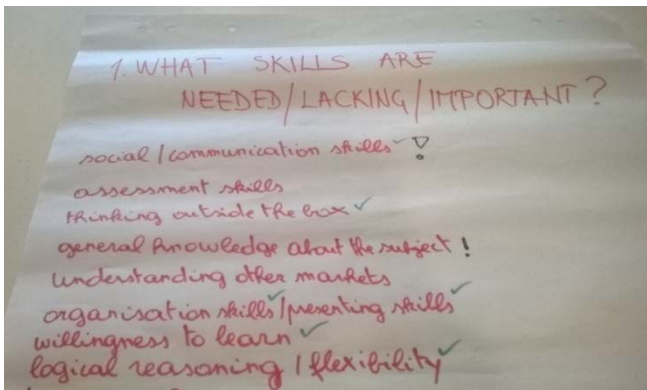 1. WHAT SKILLS ARE
NEEDED/LACKING/IMPORTANT?
social/communication skills ✓ !
assessment skills
thinking outside the box ✓
general knowledge about the subject !
understanding other markets
organisation skills ✓/presenting skills ✓
willingness to learn ✓
logical reasoning / flexibility ✓